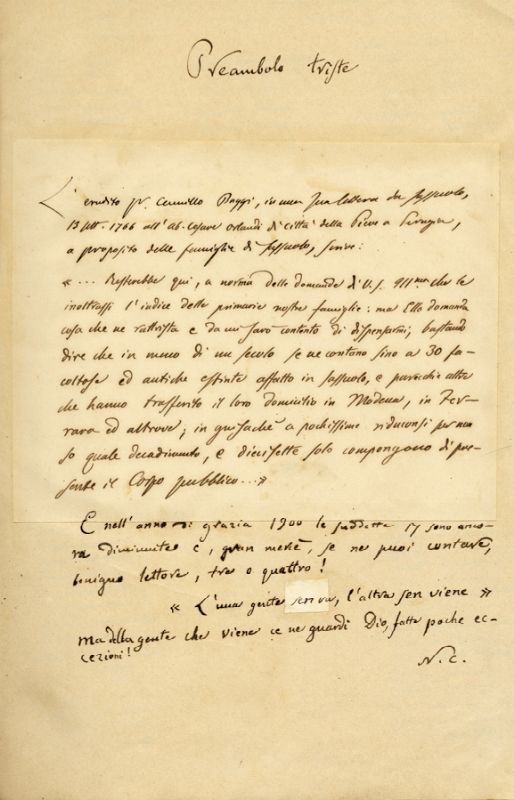 Preambolo triste
L'erudito Pr. Camillo Baggi, in una sua lettera da Sassuolo,
13 sett. 1766 all'ab. Cesare Orlandi di Città della Pieve a Perugia,
a proposito delle famiglie di Sassuolo, scrive:
«... Resterebbe qui, a norma delle domande di V. S. Ill.ma che le
inoltrassi l'indice delle primarie nostre famiglie: ma Ella domanda
cosa che ne rattrista e da cui sarò contento di dispensarmi; bastando
dire che in meno di un secolo se ne contano sino a 30 fa-
coltose ed antiche estinte affatto in Sassuolo, e parecchie altre
che hanno trasferito il loro domicilio in Modena, in Fer-
rara ed altrove; in guisachè a pochissime riduconsi per non
so quale decadimento, e diciasette solo compongono di pre-
sente il Corpo pubblico...»
E nell'anno di grazia 1900 le suddette 17 sono anco-
ra diminuite e, gran mercè, se ne puoi contare,
benigno lettore, tre o quattro!
«L'una gente sen va, l'altra sen viene»
ma della gente che viene ce ne guardi Dio, fatte poche ec-
cezioni!
N. C.